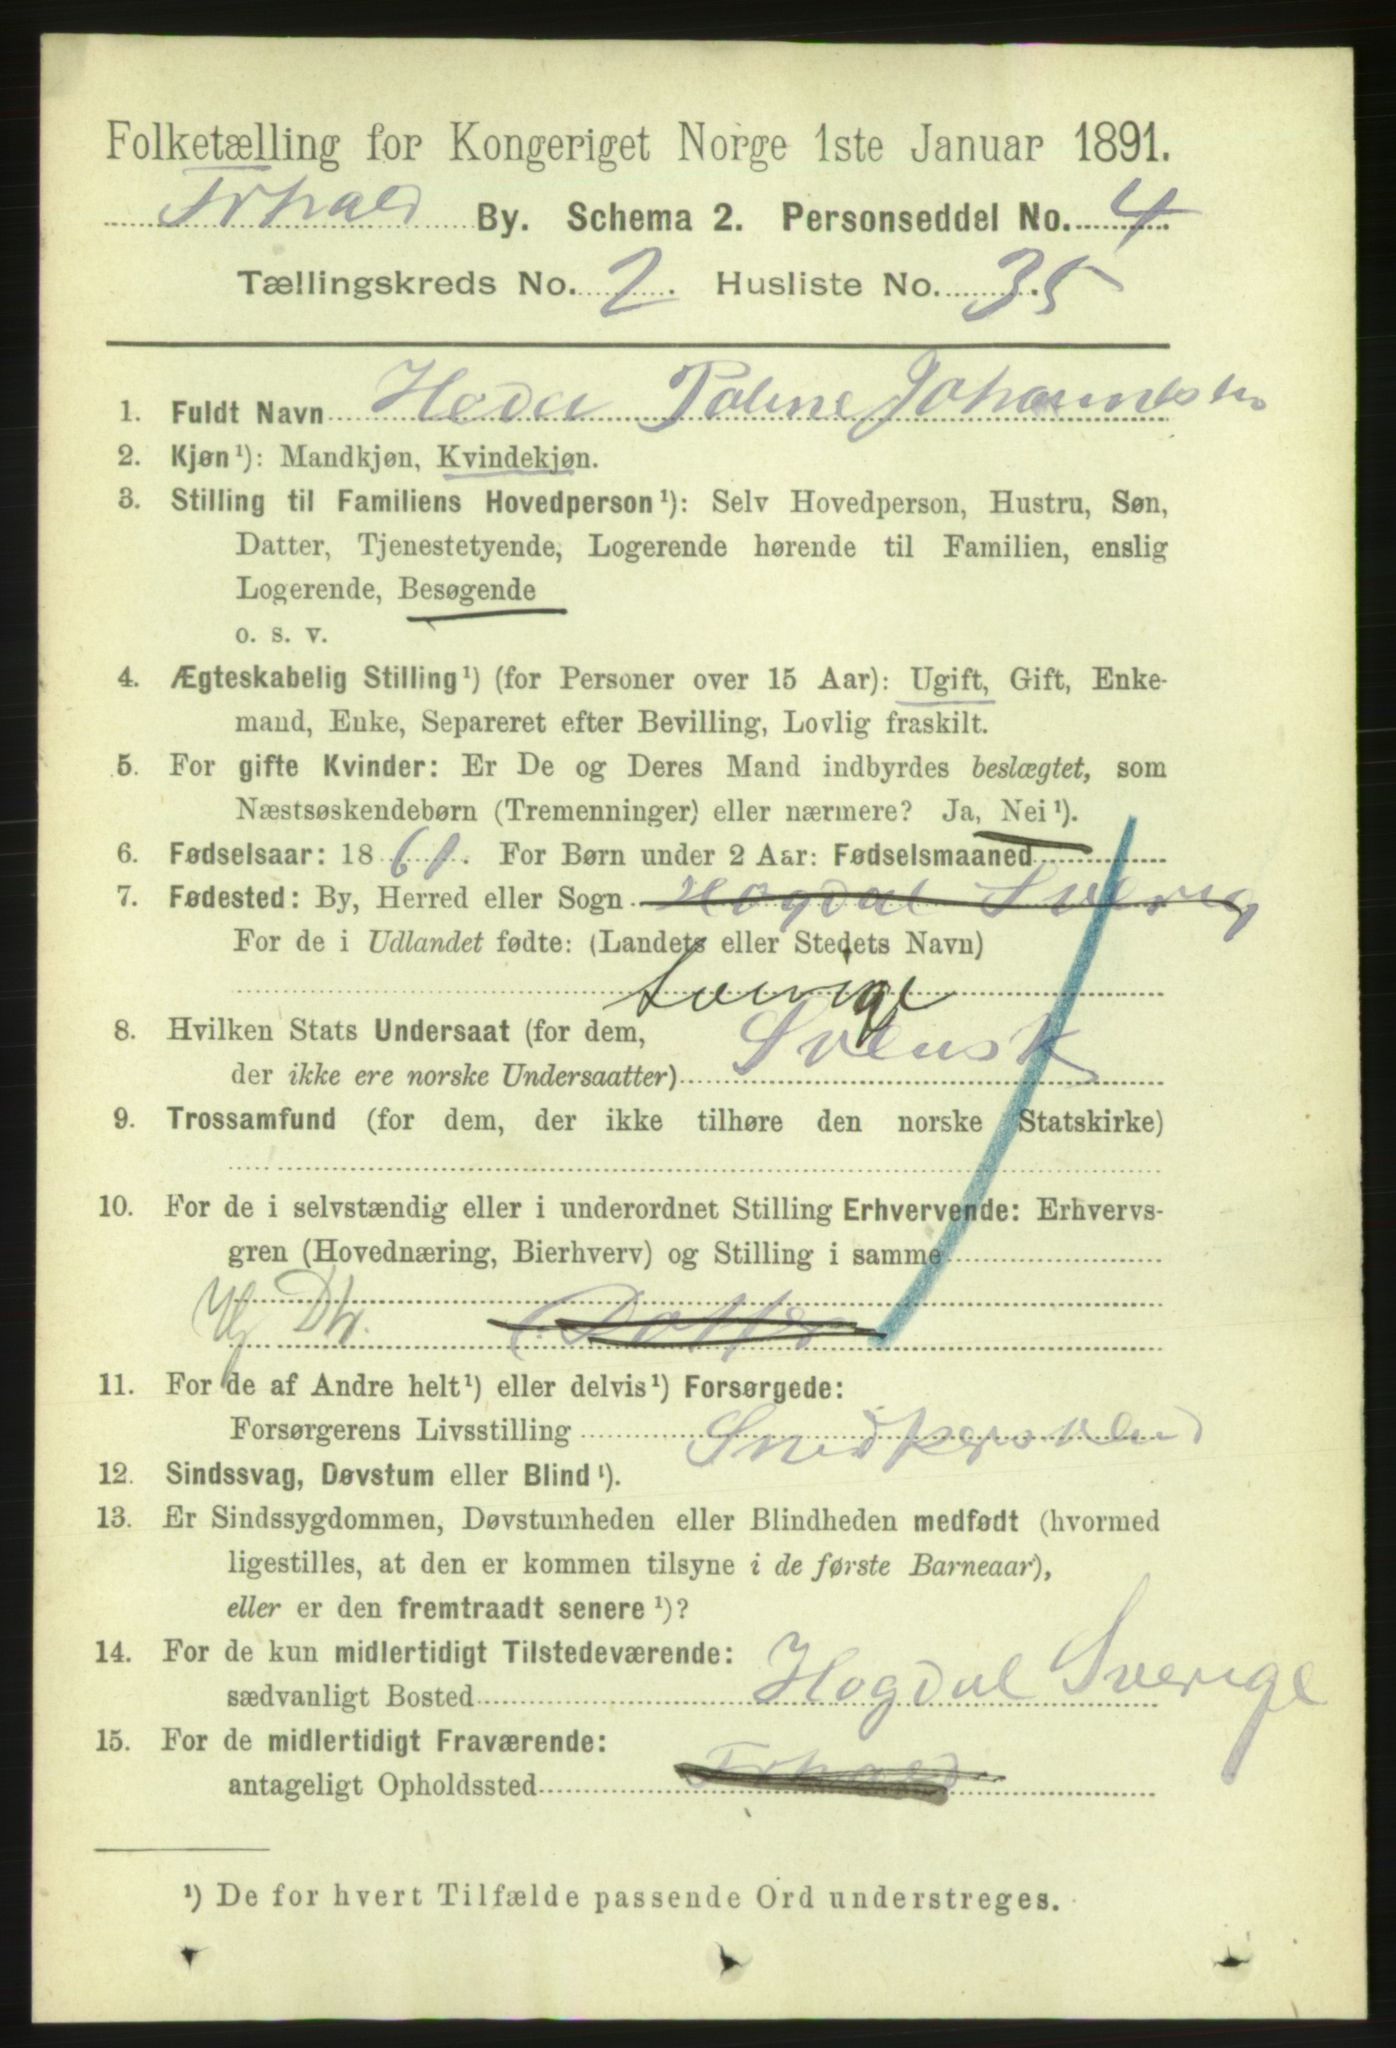 Folketælling for Kongeriget Norge 1ste Januar 1891.
Frhald By. Schema 2. Personseddel No. 4
Tællingskreds No. 2. Husliste No. 35
1. Fuldt Navn Heda Poline Johannesen
2. Kjøn ¹): Mandkjøn, Kvindekjøn.
3. Stilling til Familiens Hovedperson ¹): Selv Hovedperson, Hustru, Søn,
Datter, Tjenestetyende, Logerende hørende til Familien, enslig
Logerende, Besøgende
o. s. v.
4. Ægteskabelig Stilling ¹) (for Personer over 15 Aar): Ugift, Gift, Enke-
mand, Enke, Separeret efter Bevilling, Lovlig fraskilt.
5. For gifte Kvinder: Er De og Deres Mand indbyrdes beslægtet, som
Næstsøskendebørn (Tremenninger) eller nærmere? Ja, Nei ¹).
6. Fødselsaar: 1861. For Børn under 2 Aar: Fødselsmaaned
7. Fødested: By, Herred eller Sogn Hogdal Sverig
For de i Udlandet fødte: (Landets eller Stedets Navn)
Sverige
8. Hvilken Stats Undersaat (for dem, Svensk
der ikke ere norske Undersaatter)
9. Trossamfund (for dem, der ikke tilhøre den norske Statskirke)
10. For de i selvstændig eller i underordnet Stilling Erhvervende: Erhvervs-
gren (Hovednæring, Bierhverv) og Stilling i samme
Dtr. Datter
11. For de af Andre helt ¹) eller delvis ¹) Forsørgede:
Forsørgerens Livsstilling
12. Sindssvag, Døvstum eller Blind ¹).
13. Er Sindssygdommen, Døvstumheden eller Blindheden medfødt (hvormed
ligestilles, at den er kommen tilsyne i de første Barneaar),
eller er den fremtraadt senere ¹)?
14. For de kun midlertidigt Tilstedeværende:
sædvanligt Bosted Hogdal Sverige
15. For de midlertidigt Fraværende:
antageligt Opholdssted Frhald
¹) De for hvert Tilfælde passende Ord understreges.